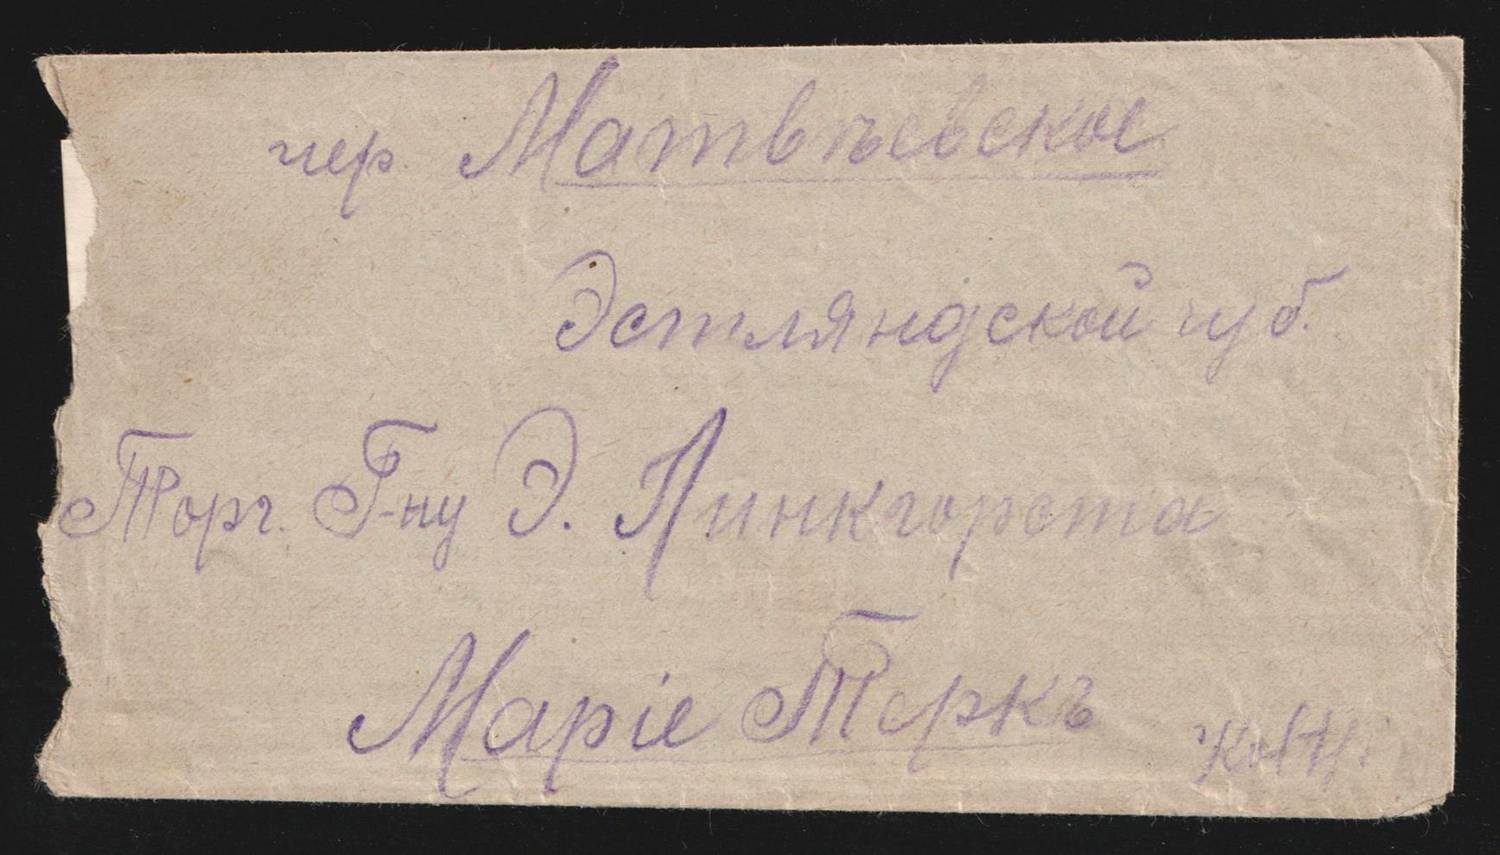 чер. Матвѣевское
Эстляндской губ.
Торг. Г-ну Э. Линкгорста
Маріе Теркъ